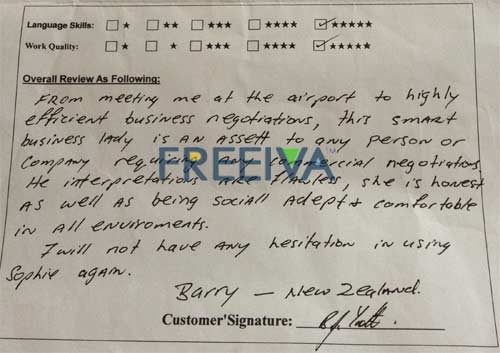 Language Skills: ☐ ★ ☐ ★★ ☐ ★★★ ☐ ★★★★ ☑ ★★★★★
Work Quality: ☐ ★ ☐ ★ ☐ ★★★ ☐ ★★★★ ☑ ★★★★★
Overall Review As Following:
From meeting me at the airport to highly
efficient business negotiations, this smart
business lady is an assett to any person or
company requiring any commercial negotiations.
He interpretations are flawless, she is honest
as well as being sociall adept & comfortable
in all enviroments.
I will not have any hesitation in using
Sophie again.
Barry — New Zealand.
Customer'Signature:
FREEIVA